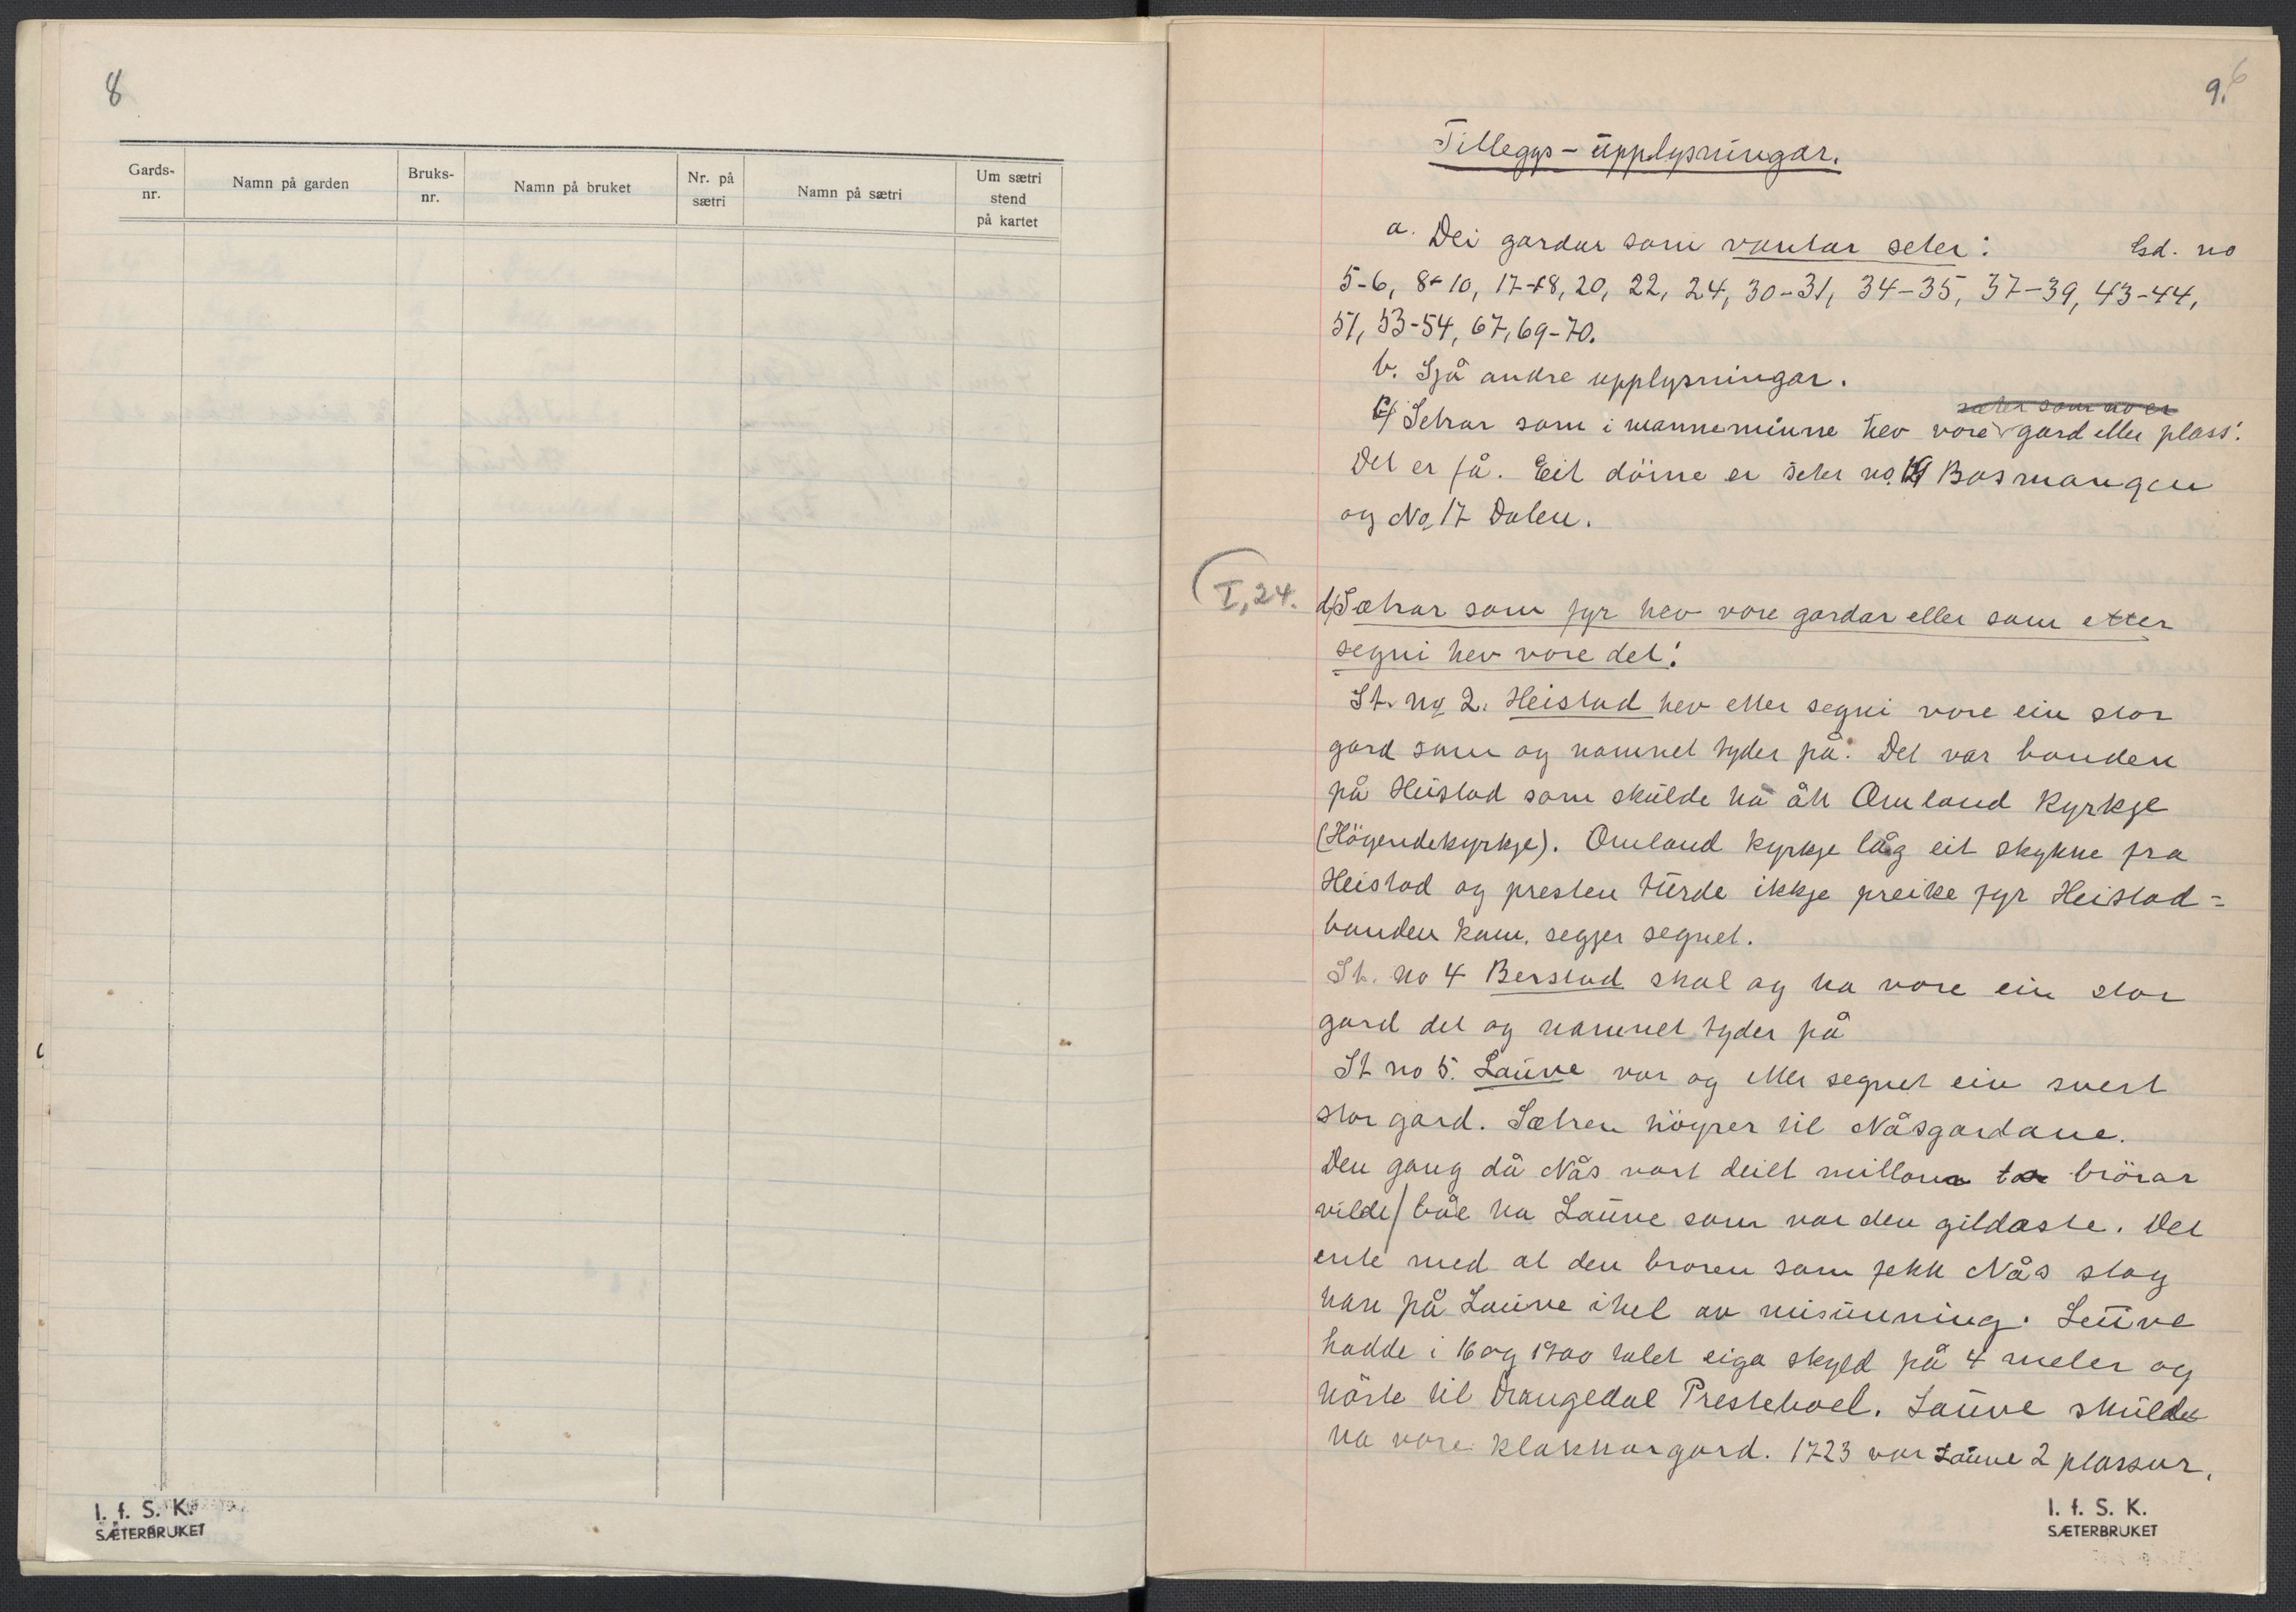 8
Gards-nr.
Namn på garden
Bruks-nr.
Namn på bruket
Nr. på sætri
Namn på sætri
Um sætri stend på kartet
I. f. S. K.
SÆTERBRUKET
9.
6
Tilleggs-upplysningar.
a. Dei gardar som vantar seter: Gd. no
5-6, 8-10, 17-18, 20, 22, 24, 30-31, 34-35, 37-39, 43-44,
51, 53-54, 67, 69-70.
b. Sjå andre upplysningar.
seter som no er
c/ Setrar som i manneminne hev vore gard eller plass:
Det er få. Eit döme er seter no. Bosmangen
og No 17 Dalen.
I, 24.
d/ Sætrar som fyr hev vore gardar eller som etter
segni hev vore det:
St. no 2. Heistad hev etter segni vore ein stor
gard som og namnet tyder på. Det var bonden
på Heistad som skulde ha ått Omland Kyrkje
(Högendekyrkje). Omland kyrkje låg eit stykke fra
Heistad og presten turde ikkje preike fyr Heistad-
bonden kom, segjer segnet.
St. no 4 Berstad skal og ha vore ein stor
gard det og namnet tyder på
St no 5. Lauve var og etter segnet ein svert
stor gard. Sætren höyrer til Nåsgardane.
Den gang då Nås vart deilt millom to brörar
vilde båe ha Lauve som var den gildaste. Det
ente med at den broren som fekk Nås slog
han på Lauve ihel av misunning. Lauve
hadde i 16 og 1700 talet eiga skyld på 4 meler og
hörte til Drangedal Prestebael. Lauve skulde
ha vore klokkargard. 1723 var Lauve 2 plassar.
I. f. S. K.
SÆTERBRUKET